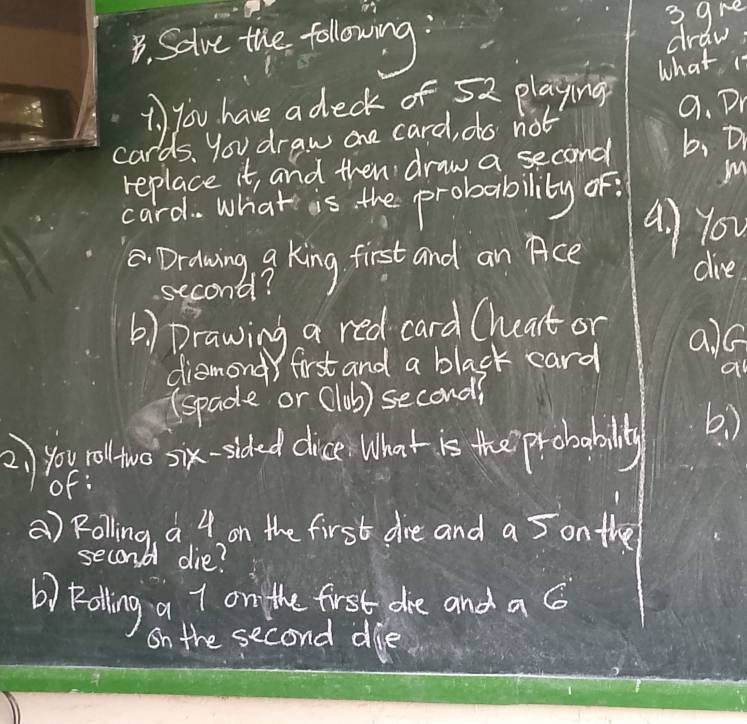 B. Solve the following:
1.) You have a deck of 52 playing
cards. You draw one card, do not
replace it, and then draw a second
card. What is the probability of:
a. Drawing a king first and an Ace
second?
b.) Drawing a red card (heart or
diamond) first and a black card
(spade or Club) second?
2.) You roll two six-sided dice. What is the probability
of:
a) Rolling a 4 on the first die and a 5 on the
second die?
b) Rolling a 1 on the first die and a 6
on the second die
3 gre
draw
what i
a. Dr
b, Dr
m
4.) You
die
a.) G
a
b.)